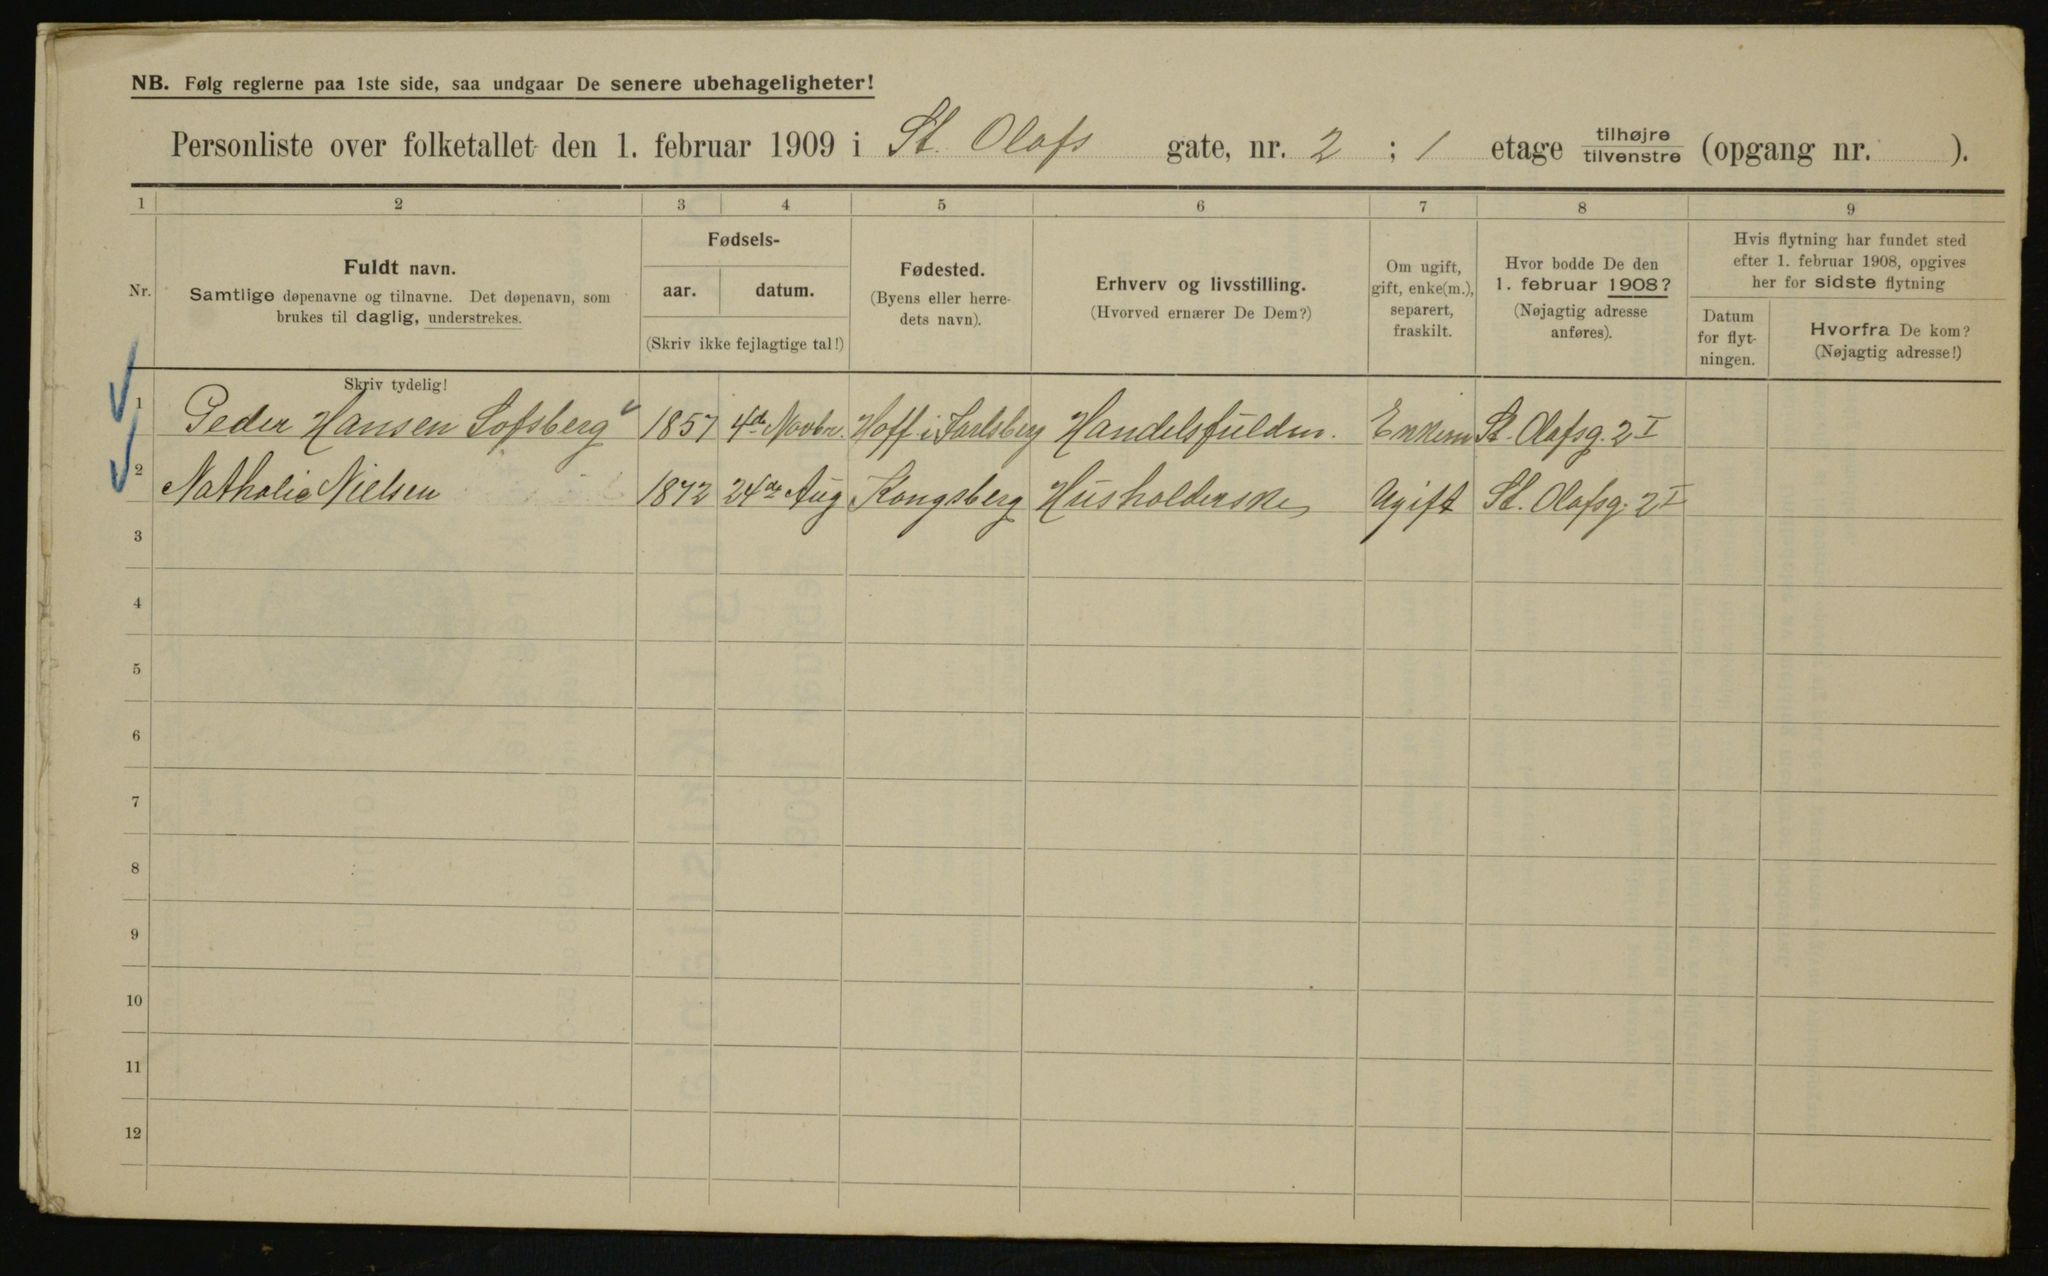 NB. Følg reglerne paa 1ste side, saa undgaar De senere ubehageligheter!
Personliste over folketallet den 1. februar 1909 i St. Olafs gate, nr. 2 ; 1 etage tilhøjre/tilvenstre (opgang nr. ).
1 2 3 4 5 6 7 8 9
Nr.
Fuldt navn.
Samtlige døpenavne og tilnavne. Det døpenavn, som
brukes til daglig, understrekes.
Skriv tydelig!
Fødsels-
aar. datum.
(Skriv ikke fejlagtige tal!)
Fødested.
(Byens eller herre-
dets navn).
Erhverv og livsstilling.
(Hvorved ernærer De Dem?)
Om ugift,
gift, enke(m.),
separert,
fraskilt.
Hvor bodde De den
1. februar 1908?
(Nøjagtig adresse
anføres).
Hvis flytning har fundet sted
efter 1. februar 1908, opgives
her for sidste flytning
Datum
for flyt-
ningen.
Hvorfra De kom?
(Nøjagtig adresse!)
1 Peder Hansen Sofsberg 1857 4de Novbr. Hoff i Jarlsberg Handelsfuldm. Enkem St. Olafsg. 2 I
2 Nathalie Nielsen 1872 24de Aug Kongsberg Husholderske Ugift St. Olafsg. 2 I
3
4
5
6
7
8
9
10
11
12